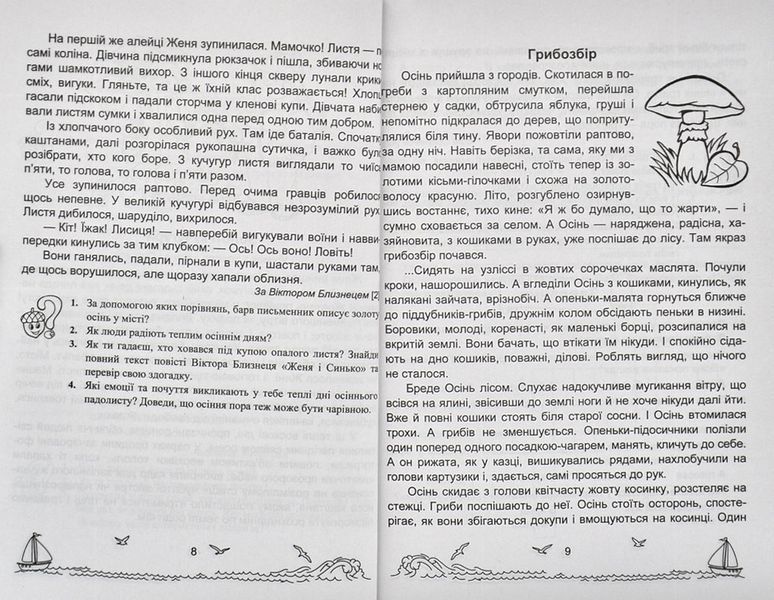 На першій же алейці Женя зупинилася. Мамочко! Листя —
самі коліна. Дівчина підсмикнула рюкзачок і пішла, збиваючи но-
гами шамкотливий вихор. З іншого кінця скверу лунали крики
сміх, вигуки. Гляньте, та це ж їхній клас розважається! Хлопц
гасали підскоком і падали сторчма у кленові купи. Дівчата наби
вали листям сумки і хвалилися одна перед одною тим добром.
Із хлопчачого боку особливий рух. Там іде баталія. Спочатк
каштанами, далі розгорілася рукопашна сутичка, і важко бул
розібрати, хто кого боре. З кучугур листя виглядали то чиїс
п'яти, то голова, то голова і п'яти разом.
Усе зупинилося раптово. Перед очима гравців робилос
щось непевне. У великій кучугурі відбувався незрозумілий рух
Листя дибилося, шаруділо, вихрилося.
— Кіт! Їжак! Лисиця! — навперебій вигукували воїни і навви-
передки кинулись за тим клубком: — Ось! Ось воно! Ловіть!
Вони ганялись, падали, пірнали в купи, шастали руками там,
де щось ворушилося, але щоразу хапали облизня.
За Віктором Близнецем [2]
1. За допомогою яких порівнянь, барв письменник описує золоту
осінь у місті?
2. Як люди радіють теплим осіннім дням?
3. Як ти гадаєш, хто ховався під купою опалого листя? Знайди
повний текст повісті Віктора Близнеця «Женя і Синько» та
перевір свою здогадку.
4. Які емоції та почуття викликають у тебе теплі дні осіннього
падолисту? Доведи, що осіння пора теж може бути чарівною.
8
Грибозбір
Осінь прийшла з городів. Скотилася в по-
греби з картопляним смутком, перейшла
стернею у садки, обтрусила яблука, груші і
непомітно підкралася до дерев, що поприту-
лялися біля тину. Явори пожовтіли раптово,
за одну ніч. Навіть берізка, та сама, яку ми з
мамою посадили навесні, стоїть тепер із зо-
лотими кісьми-гілочками і схожа на золото-
волосу красуню. Літо, розгублено озирнув-
шись востаннє, тихо кине: «Я ж бо думало, що то жарти», — і
сумно сховається за селом. А Осінь — наряджена, радісна, ха-
зяйновита, з кошиками в руках, уже поспішає до лісу. Там якраз
грибозбір почався.
...Сидять на узліссі в жовтих сорочечках маслята. Почули
кроки, нашорошились. А вгледіли Осінь з кошиками, кинулись, як
налякані зайчата, врізнобіч. А опеньки-малята горнуться ближче
до піддубників-грибів, дружнім колом обсідають пеньки в низині.
Боровики, молоді, коренасті, як маленькі борці, розсипалися на
вкритій землі. Вони бачать, що втікати їм нікуди. І спокійно сіда-
ють на дно кошиків, поважні, ділові. Роблять вигляд, що нічого
не сталося.
Бреде Осінь лісом. Слухає надокучливе мугикання вітру, що
всівся на ялині, звісивши до землі ноги й не хоче нікуди далі йти.
Вже й повні кошики стоять біля старої сосни. І Осінь втомилася
трохи. А грибів не зменшується. Опеньки-підосичники полізли
один поперед одного посадкою-чагарем, манять, кличуть до себе.
А он рижата, як у казці, вишикувались рядами, нахлобучили на
голови картузики і, здається, самі просяться до рук.
Осінь скидає з голови квітчасту жовту косинку, розстеляє на
стежці. Гриби поспішають до неї. Осінь стоїть осторонь, спосте-
рігає, як вони збігаються докупи і вмощуються на косинці. Один
9